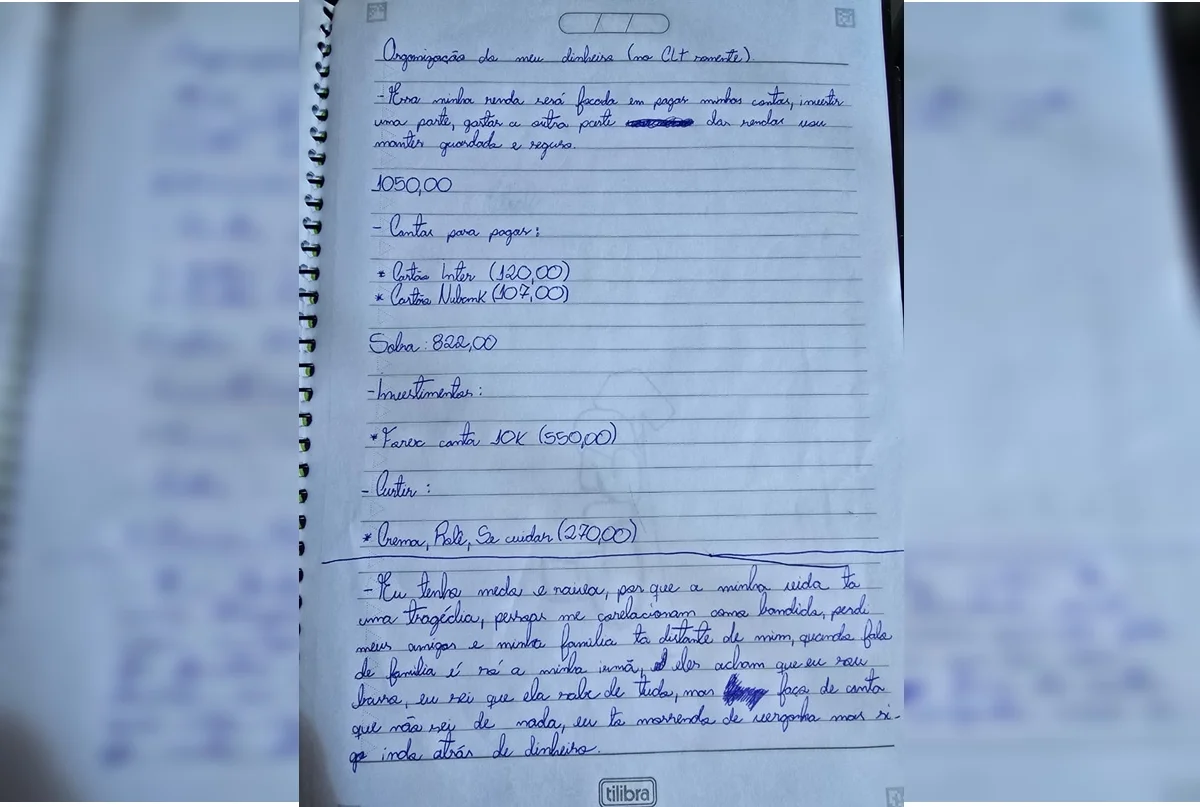 Organização do meu dinheiro (no CLT somente)
- Essa minha renda será focada em pagar minhas contas, investir
uma parte, gastar a outra parte das rendas vou
manter guardada e seguro.
1050,00
- Contas para pagar:
* Cartão Inter (120,00)
* Cartão Nubank (107,00)
Sobra: 822,00
- Investimentos:
* Forex conta 10K (550,00)
- Curtir:
* Crema, Rolê, Se cuidar (270,00)
- Eu tenho medo e raiva, por que a minha vida ta
uma tragédia, pessoas me corelacionam como bandido, perdi
meus amigos e minha família ta distante de mim, quando falo
de família é só a minha irmã, eles acham que eu sou
burro, eu sei que ela sabe de tudo, mas faço de conta
que não sei de nada, eu to morrendo de vergonha mas si-
go indo atrás de dinheiro.
tilibra